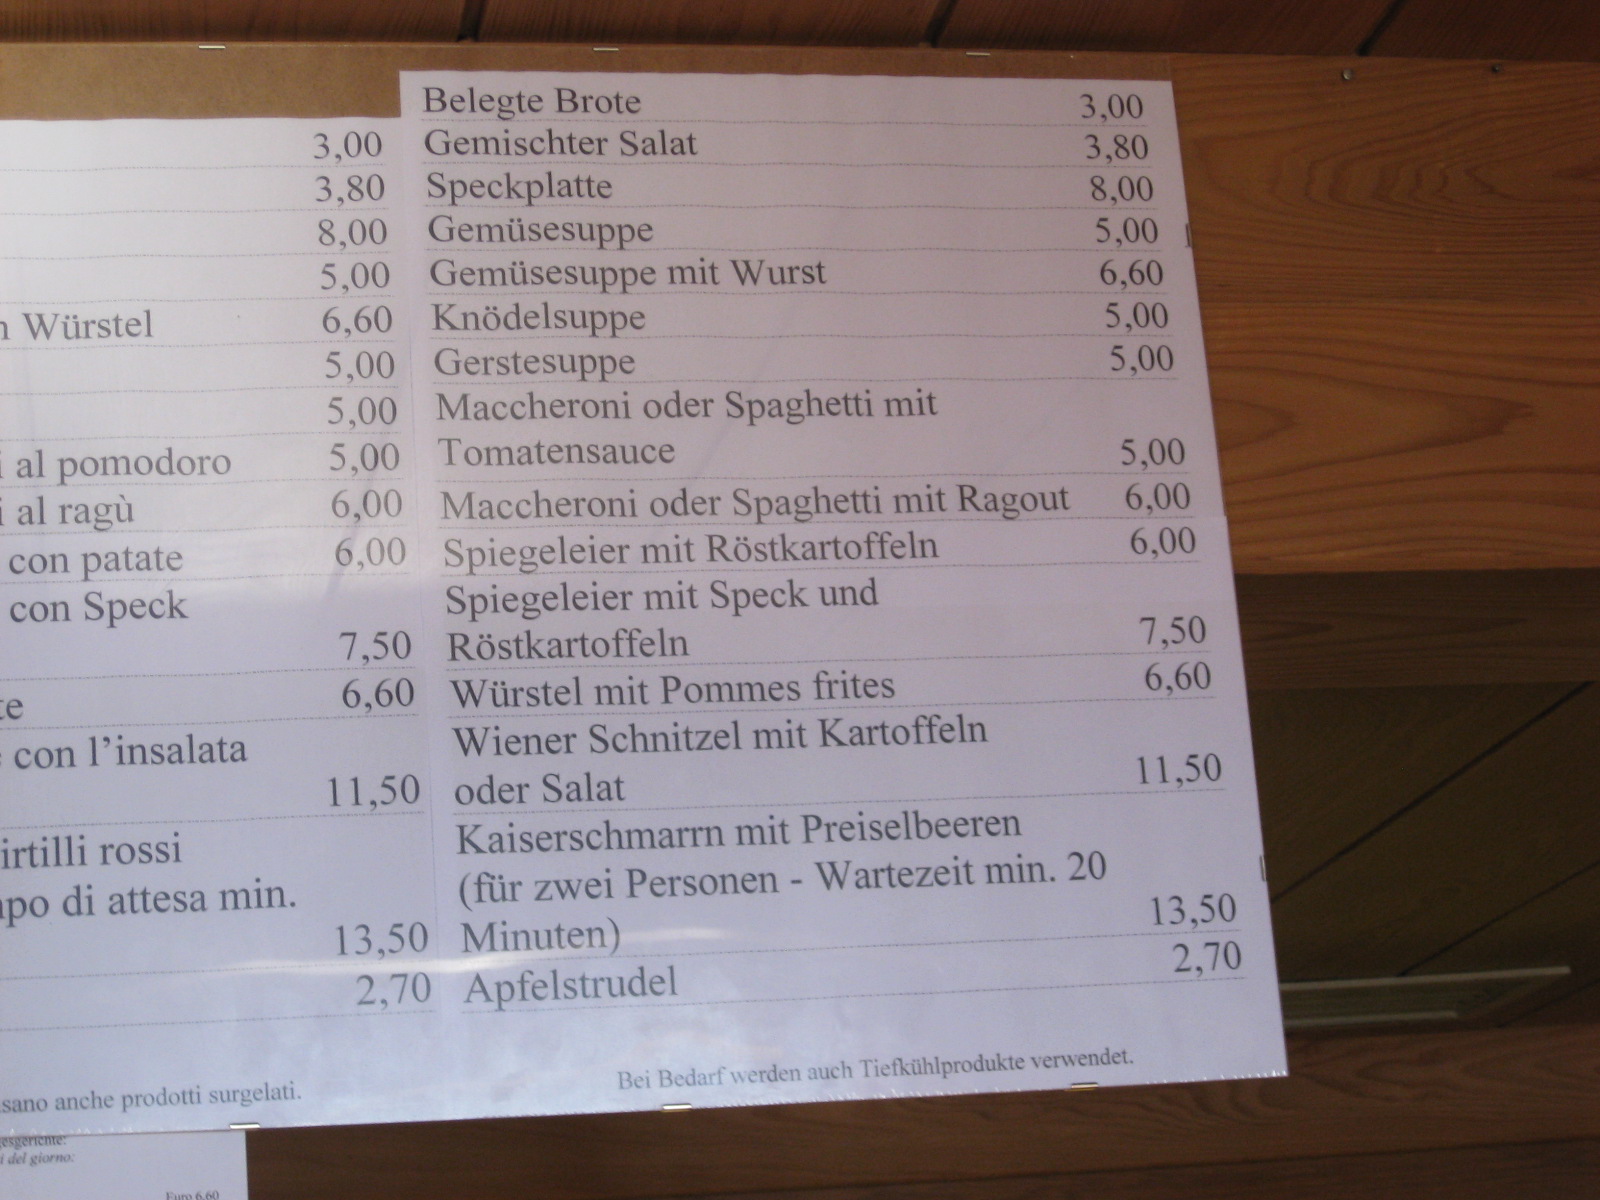 3,00
3,80
8,00
5,00
Würstel 6,60
5,00
5,00
al pomodoro 5,00
al ragù 6,00
con patate 6,00
con Speck
7,50
6,60
con l'insalata
11,50
rossi
di attesa min.
13,50
2,70
anche prodotti surgelati.
Belegte Brote 3,00
Gemischter Salat 3,80
Speckplatte 8,00
Gemüsesuppe 5,00
Gemüsesuppe mit Wurst 6,60
Knödelsuppe 5,00
Gerstesuppe 5,00
Maccheroni oder Spaghetti mit
Tomatensauce 5,00
Maccheroni oder Spaghetti mit Ragout 6,00
Spiegeleier mit Röstkartoffeln 6,00
Spiegeleier mit Speck und
Röstkartoffeln 7,50
Würstel mit Pommes frites 6,60
Wiener Schnitzel mit Kartoffeln
oder Salat 11,50
Kaiserschmarrn mit Preiselbeeren
(für zwei Personen - Wartezeit min. 20
Minuten) 13,50
Apfelstrudel 2,70
Bei Bedarf werden auch Tiefkühlprodukte verwendet.
del giorno:
Euro 6,60